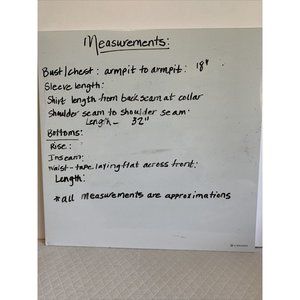 Measurements:
Bust/chest: armpit to armpit: 18"
Sleeve length:
Shirt length from back seam at collar
Shoulder seam to shoulder seam:
Length- 32"
Bottoms:
Rise:
Inseam:
Waist-tape laying flat across front:
Length:
*all measurements are approximations